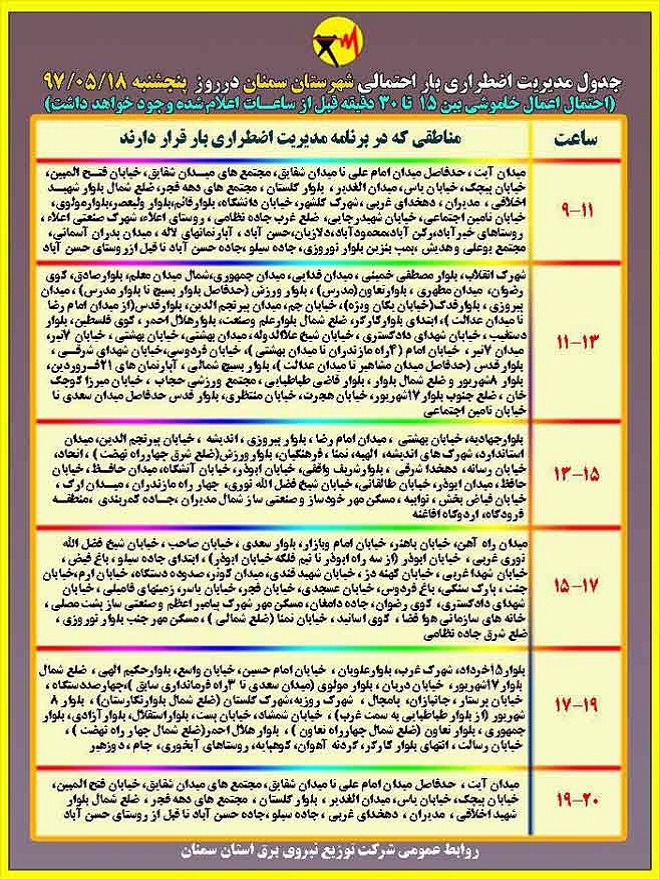 جدول مدیریت اضطراری بار احتمالی شهرستان سمنان درروز پنجشنبه ۹۷/۰۵/۱۸
(احتمال اعمال خاموشی بین ۱۵ تا ۳۰ دقیقه قبل از ساعات اعلام شده وجود خواهد داشت)
ساعت
مناطقی که در برنامه مدیریت اضطراری بار قرار دارند
۹-۱۱
میدان آیت ، حدفاصل میدان امام علی تا میدان شقایق، مجتمع های میدان شقایق، خیابان فتح المبین،
خیابان پیچک، خیابان یاس، میدان الغدیر ، بلوار گلستان ، مجتمع های دهه فجر، ضلع شمال بلوار شهید
اخلاقی ، مدیران ، دهخدای غربی ، شهرک گلشهر، خیابان دانشگاه، بلوارقائم، بلوار ولیعصر، بلوارمولوی،
خیابان تامین اجتماعی ، خیابان شهیدرجایی، ضلع غرب جاده نظامی ، روستای اعلاء، شهرک صنعتی اعلاء ،
روستاهای خیرآباد، رکن آباد،محمودآباد،دلازیان،حسن آباد ، آپارتمانهای لاله ، میدان پدران آسمانی،
مجتمع بوعلی و هدیش ،پمپ بنزین بلوار نوروزی ، جاده سیلو ،جاده حسن آباد تا قبل ازروستای حسن آباد
۱۱-۱۳
شهرک انقلاب، بلوار مصطفی خمینی ، میدان فدایی، میدان جمهوری،شمال میدان معلم، بلوارصادق، کوی
رضوان، میدان مطهری ، بلوارتعاون(مدرس) ، بلوار ورزش (حدفاصل بلوار بسیج تا بلوار مدرس) ، میدان
پیروزی ، بلوارفدک(خیابان یگان ویژه)، خیابان جم، میدان پیرنجم الدین، بلوارقدس(از میدان امام رضا
تا میدان عدالت )، ابتدای بلوارکارگر، ضلع شمال بلوارعلم وصنعت، بلوارهلال احمر، کوی فلسطین، بلوار
دستغیب ، خیابان شهدای دادگستری ، خیابان شیخ علاالدوله، میدان بهشتی، خیابان بهشتی ، خیابان ۷تیر،
میدان ۷تیر، خیابان امام (۴راه مازندران تا میدان بهشتی )، خیابان فردوسی،خیابان شهدای شرقی ،
بلوار قدس (حدفاصل میدان مشاهیر تا میدان عدالت )، بلوار بسیج شمالی ، آپارتمان های ۲۱فروردین،
بلوار ۸شهریور و ضلع شمال بلوار ، بلوار قاضی طباطبایی ، مجتمع ورزشی حجاب ، خیابان میرزا کوچک
خان ، ضلع جنوب بلوار ۱۷شهریور، خیابان هجرت، خیابان منتظری، بلوار قدس حدفاصل میدان سعدی تا
خیابان تامین اجتماعی
۱۳-۱۵
بلوارجهادیه، خیابان بهشتی ، میدان امام رضا ، بلوار پیروزی ، اندیشه ، خیابان پیرنجم الدین، میدان
استاندارد، شهرک های اندیشه، الهیه، نمتا، فرهنگیان، بلوار ورزش(ضلع شرق چهارراه نهضت ) ، اتحاد،
خیابان رسانه ، دهخدا شرقی ، بلوارشریف واقفی، خیابان ابوذر، خیابان آتشگاه، میدان حافظ، خیابان
حافظ، میدان ابوذر، خیابان طالقانی، خیابان شیخ فضل الله نوری، چهار راه مازندران ، میدان ارک ،
خیابان فیاض بخش ، نوابیه ، مسکن مهر خودساز و صنعتی ساز شمال مدیران ،جاده کمربندی ،منطقه
فرودگاه، اردوگاه افاغنه
۱۵-۱۷
میدان راه آهن، خیابان باهنر، خیابان امام وبازار، بلوار سعدی ، خیابان صاحب ، خیابان شیخ فضل الله
نوری غربی ، خیابان ابوذر (از سه راه ابوذر تا نیم فلکه خیابان ابوذر) ، ابتدای جاده سیلو ، باغ فیض ،
خیابان شهدا غربی ، خیابان کهنه دژ ، خیابان شهید قندی، میدان کوثر، صدوده دستگاه، خیابان ارم،خیابان
جنت ، پارک سنگی، باغ فردوس، خیابان عسجدی، خیابان فجر، خیابان یاسر، زمینهای فامیلی ، خیابان
شهدای دادگستری، کوی رضوان، جاده دامغان، مسکن مهر شهرک پیامبر اعظم و صنعتی ساز پشت مصلی ،
خانه های سازمانی هوا فضا ، کوی اساتید ، خیابان نمتا (ضلع شمالی ) ، مسکن مهر جنب بلوار نوروزی ،
ضلع شرق جاده نظامی
۱۷-۱۹
بلوار۱۵خرداد، شهرک غرب، بلوارعلویان ، خیابان امام حسین، خیابان واسع، بلوارحکیم الهی ، ضلع شمال
بلوار ۱۷شهریور، خیابان دربان ، بلوار مولوی (میدان سعدی تا ۳راه فرمانداری سابق )،چهارصددستگاه ،
خیابان پرستار ، جانبازان، پامچال ، شهرک روزیه،شهرک گلستان (ضلع شمال بلوارنگارستان)، بلوار ۸
شهریور (از بلوار طباطبایی به سمت غرب) ، خیابان شمشاد، خیابان پست، بلواراستقلال، بلوارآزادی، بلوار
جمهوری ،بلوار تعاون (ضلع شمال چهارراه تعاون ) ، بلوار هلال احمر(ضلع شمال چهار راه نهضت ) ،
خیابان رسالت ، انتهای بلوار کارگر، گردنه آهوان، کوهپایه، روستاهای آبخوری، جام ، دوزهیر
۱۹-۲۰
میدان آیت ، حدفاصل میدان امام علی تا میدان شقایق، مجتمع های میدان شقایق، خیابان فتح المبین،
خیابان پیچک، خیابان یاس، میدان الغدیر ، بلوار گلستان ، مجتمع های دهه فجر ، ضلع شمال بلوار
شهید اخلاقی ، مدیران ، دهخدای غربی ، جاده سیلو ،جاده حسن آباد تا قبل از روستای حسن آباد
روابط عمومی شرکت توزیع نیروی برق استان سمنان